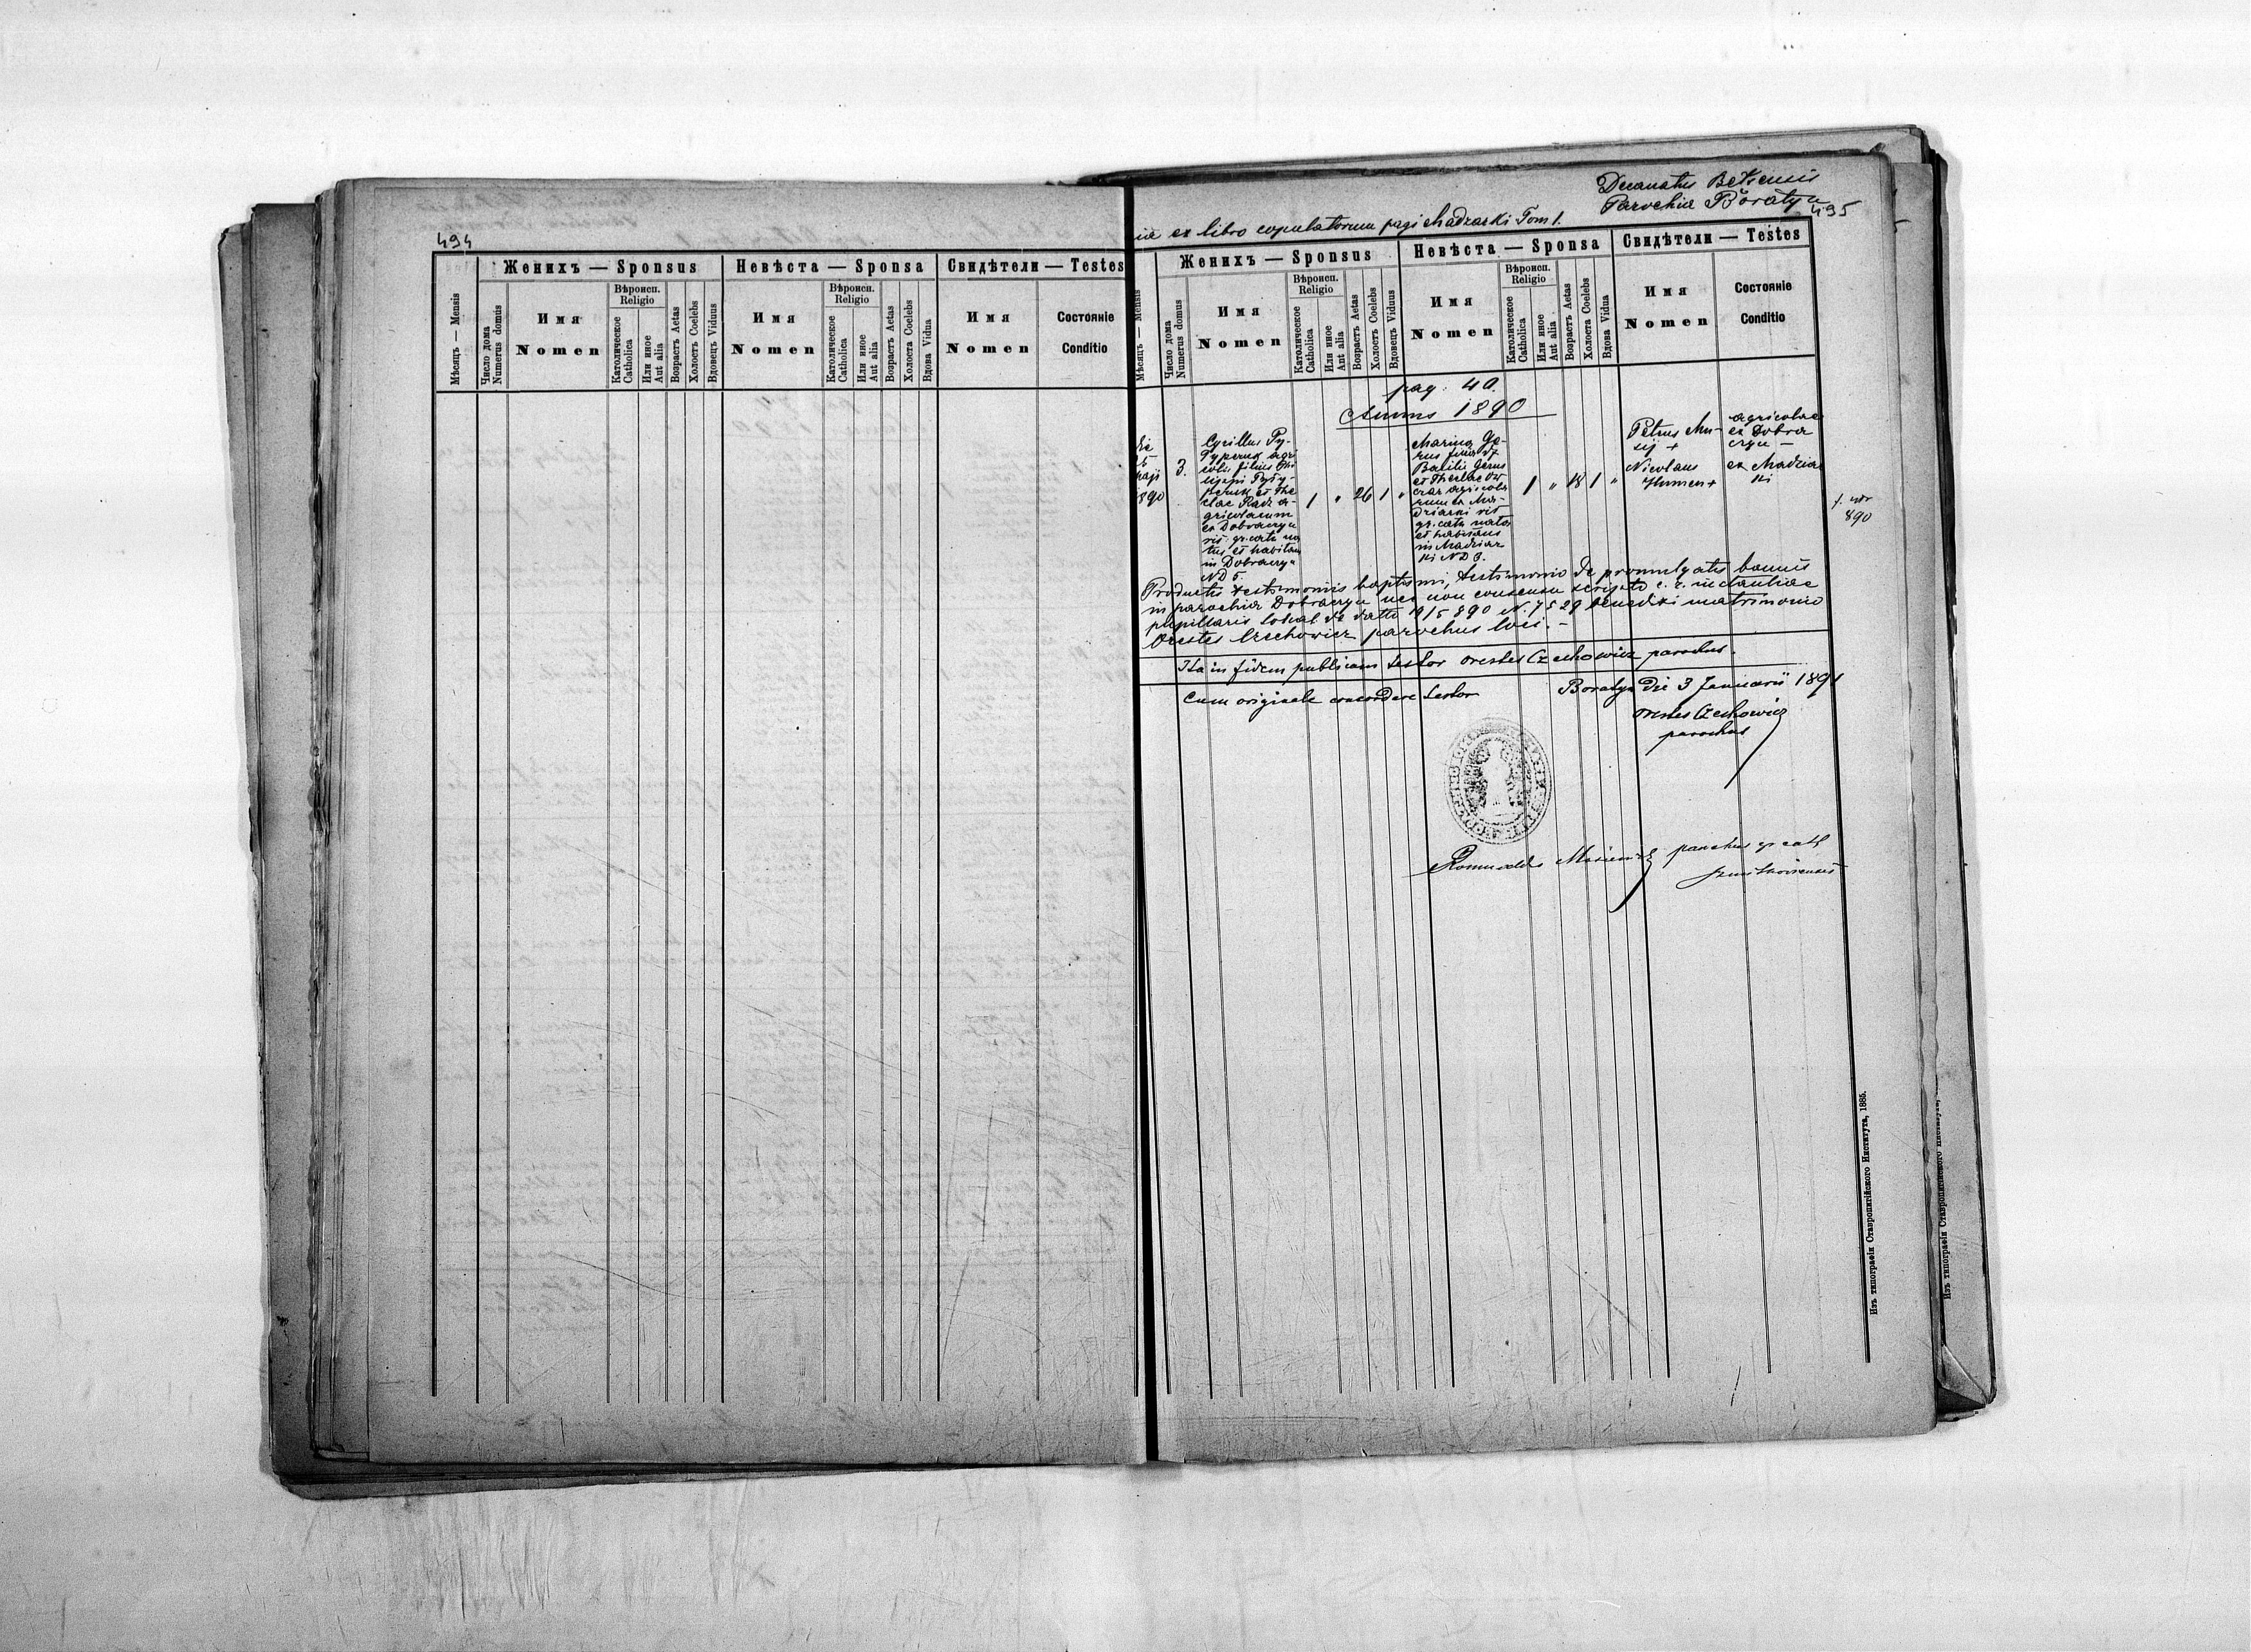 494
Женихъ — Sponsus
Невѣста — Sponsa
Свидѣтели — Testes
Мѣсяцъ — Mensis
Число дома
Numerus domus
Имя
Nomen
Вѣроисп.
Religio
Католическое
Catholica
Или иное
Aut alia
Возрастъ Aetas
Холостъ Coelebs
Вдовецъ Viduus
Имя
Nomen
Вѣроисп.
Religio
Католическое
Catholica
Или иное
Aut alia
Возрастъ Aetas
Холоста Coelebs
Вдова Vidua
Имя
Nomen
Состояніе
Conditio
Decanatus Belzensis
Parochia Boratyn
495
ex libro copulatorum pagi Madzarki Tom I.
Женихъ — Sponsus
Невѣста — Sponsa
Свидѣтели — Testes
Мѣсяцъ — Mensis
Число дома
Numerus domus
Имя
Nomen
Вѣроисп.
Religio
Католическое
Catholica
Или иное
Aut alia
Возрастъ Aetas
Холостъ Coelebs
Вдовецъ Viduus
Имя
Nomen
Вѣроисп.
Religio
Католическое
Catholica
Или иное
Aut alia
Возрастъ Aetas
Холоста Coelebs
Вдова Vidua
Имя
Nomen
Состояніе
Conditio
pag. 40.
Annus 1890
die
maji
1890
3.
Cyrillus Ty-
agri
cola filius Phi
lippi
et The
clae Radz a-
gricolarum
ex Dobraczyn
rit. gr. cath. na
tus et habitans
in Dobraczyn
ND 5.
1 " 26 1 "
Marina Ge-
rus filia
Basilii Gerus
et Theclae
agricola
rum ex Ma-
dziarki rit
gr. cath. nata
et habitans
in Madziar
ki ND 3.
1 " 18 1 "
Petrus Mu-
sij +
Nicolaus
Humen +
agricolae
ex Dobra
czyn —
ex Madziar
ki
890
Productis testimoniis baptismi, testimonio de promulgatis bannis
in parochia Dobraczyn nec non consensu scripto c. r. instantiae
pupillaris Sokal de datto 19/5 890 N. 7529 benedixi matrimonio
Orestes Czechowicz parochus loci. —
Ita in fidem publicam testor Orestes Czechowicz parochus.
Cum originale concordare testor
Boratyn die 3 Januarii 1891
Orestes Czechowicz
parochus
parochus gr. cath.
Изъ типографіи Ставропигійского Института, 1885.
Изъ типографіи Ставропигійского Института,